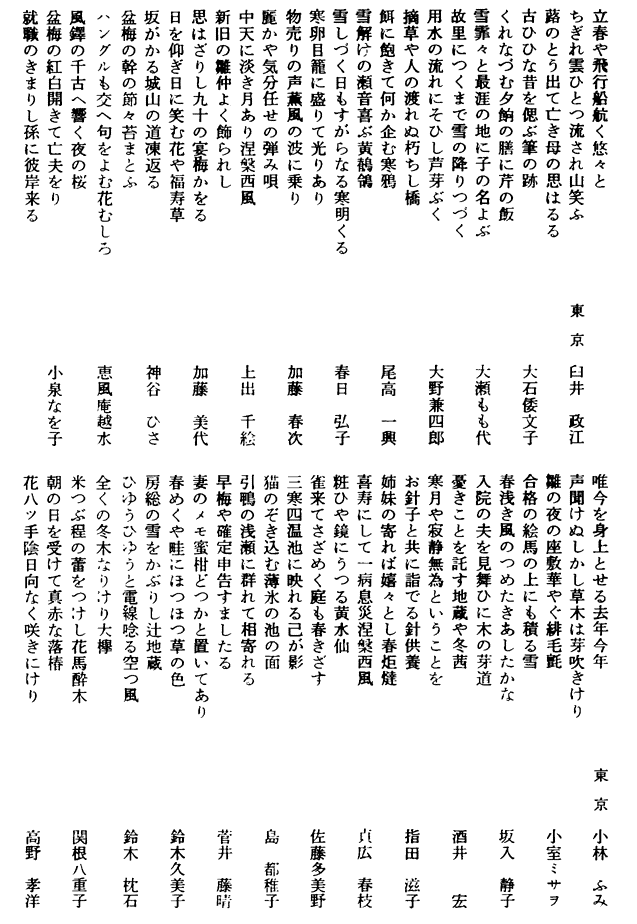 立春や飛行船航く悠々と
ちぎれ雲ひとつ流され山笑ふ
東京 臼井 政江
蕗のとう出て亡き母の思はるる
古ひひな昔を偲ぶ筆の跡
大石倭文子
くれなづむ夕餉の膳に芹の飯
雪霏々と最涯の地に子の名よぶ
大瀬もも代
故里につくまで雪の降りつづく
用水の流れにそひし芦芽ぶく
大野兼四郎
摘草や人の渡れぬ朽ちし橋
餌に飽きて何か企む寒鴉
尾高 一興
雪解けの瀬音喜ぶ黄鶺鴒
雪しづく日もすがらなる寒明くる
春日 弘子
寒卵目籠に盛りて光りあり
物売りの声薫風の波に乗り
加藤 春次
麗かや気分任せの弾み唄
中天に淡き月あり涅槃西風
上出 千絵
新旧の雛仲よく飾られし
思はざりし九十の宴梅かをる
加藤 美代
日を仰ぎ日に笑む花や福寿草
坂がかる城山の道凍返る
神谷 ひさ
盆梅の幹の節々苔まとふ
ハングルも交へ句をよむ花むしろ
恵風庵越水
風鐸の千古へ響く夜の桜
盆梅の紅白開きて亡夫をり
小泉なを子
就職のきまりし孫に彼岸来る
唯今を身上とせる去年今年
東京 小林 ふみ
声聞けぬしかし草木は芽吹きけり
雛の夜の座敷華やぐ緋毛氈
小室ミサヲ
合格の絵馬の上にも積る雪
春浅き風のつめたきあしたかな
坂入 静子
入院の夫を見舞ひに木の芽道
憂きことを託す地蔵や冬茜
酒井 宏
寒月や寂静無為ということを
お針子と共に詣でる針供養
指田 滋子
姉妹の寄れば嬉々とし春炬燵
喜寿にして一病息災涅槃西風
貞広 春枝
粧ひや鏡にうつる黄水仙
雀来てさざめく庭も春きざす
佐藤多美野
三寒四温池に映れる己が影
猫のぞき込む薄氷の池の面
島 都稚子
引鴨の浅瀬に群れて相寄れる
早梅や確定申告すましたる
菅井 藤晴
妻のメモ蜜柑どつかと置いてあり
春めくや畦にほつほつ草の色
鈴木久美子
房総の雪をかぶりし辻地蔵
ひゆうひゆうと電線唸る空つ風
鈴木 枕石
全くの冬木なりけり大欅
米つぶ程の蕾をつけし花馬酔木
関根八重子
朝の日を受けて真赤な落椿
花八ッ手陰日向なく咲きにけり
高野 孝洋